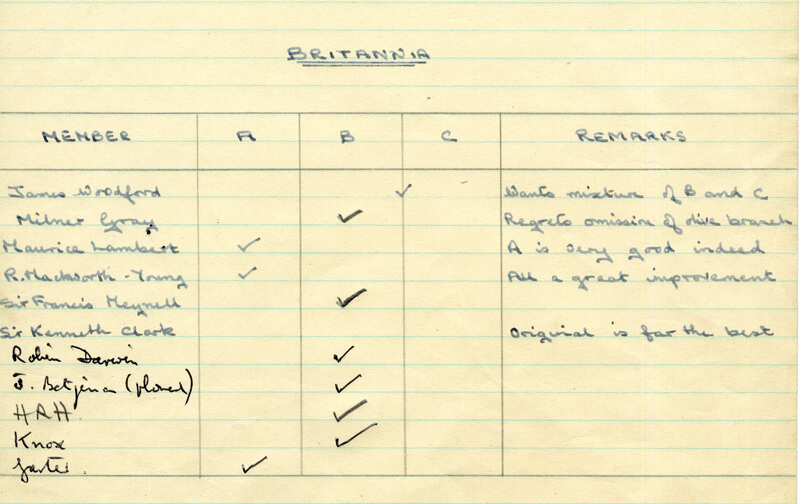 BRITANNIA
MEMBER A B C REMARKS
James Woodford ✓ Wants mixture of B and C
Milner Gray ✓ Regrets omission of olive branch
Maurice Lambert ✓ A is very good indeed
R. Mackworth-Young ✓ All a great improvement
Sir Francis Meynell ✓
Sir Kenneth Clark Original is far the best
Robin Darwin ✓
J. Betjeman (phoned) ✓
HRH ✓
Knox ✓
Garter. ✓